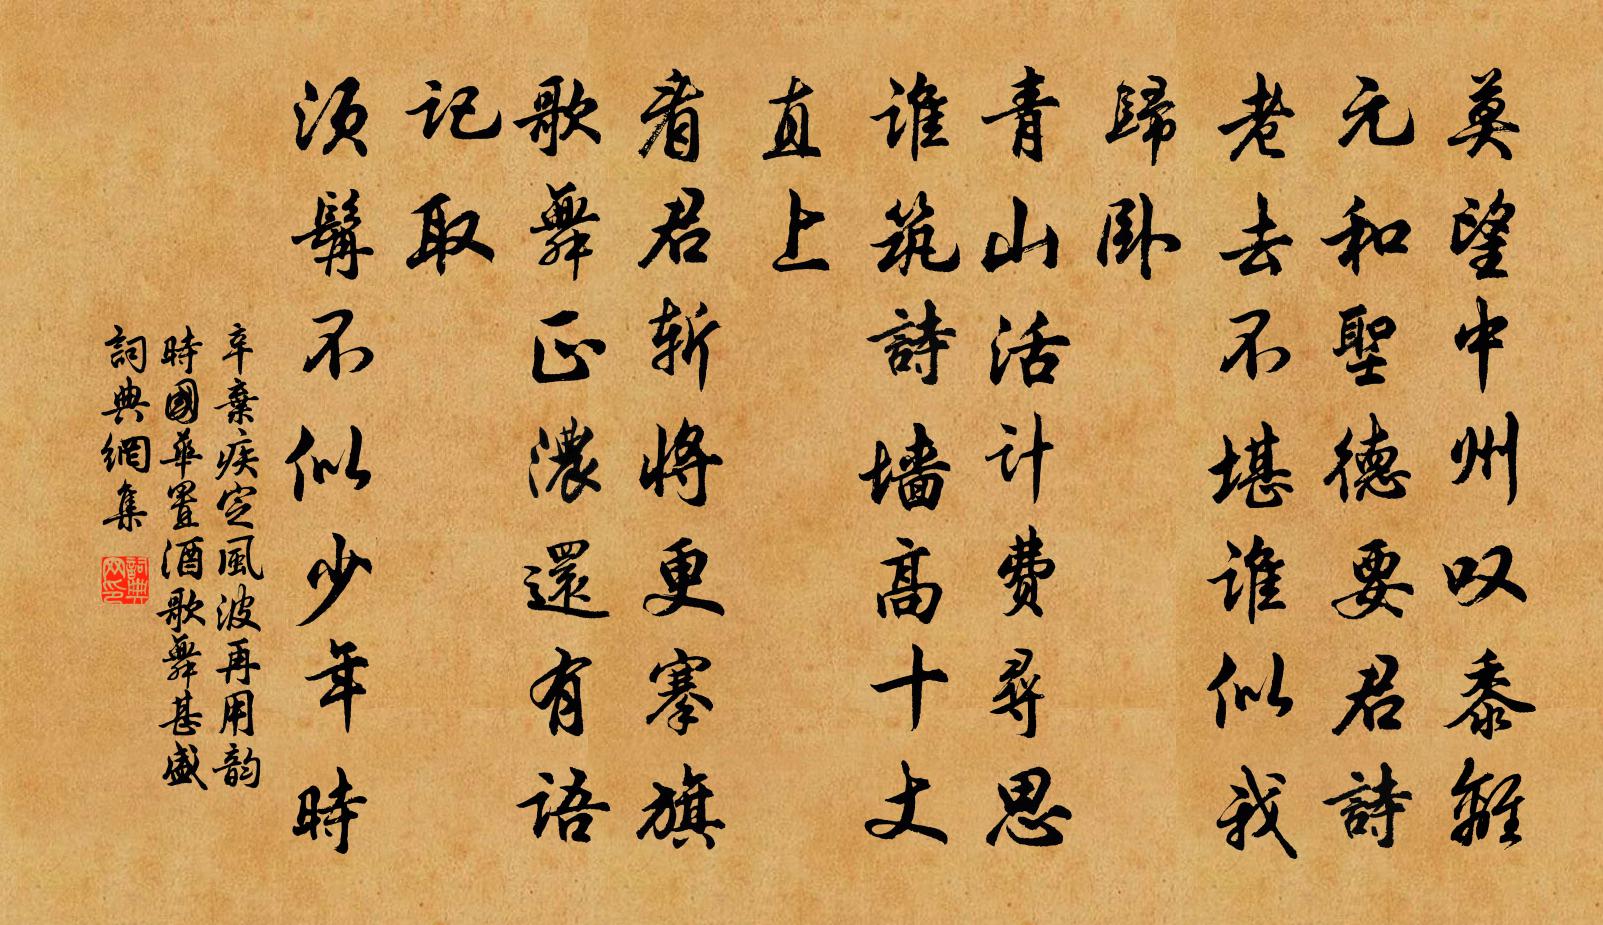 莫望中州叹黍離
元和聖德要君詩
老去不堪誰似我
歸卧
青山活计費尋思
誰筑詩墙高十丈
直上
看君斩將更搴旗
歌舞正濃還有语
记取
须髯不似少年時
辛棄疾定風波再用韵
時國華置酒歌舞甚盛
詞典網集
詞典网印